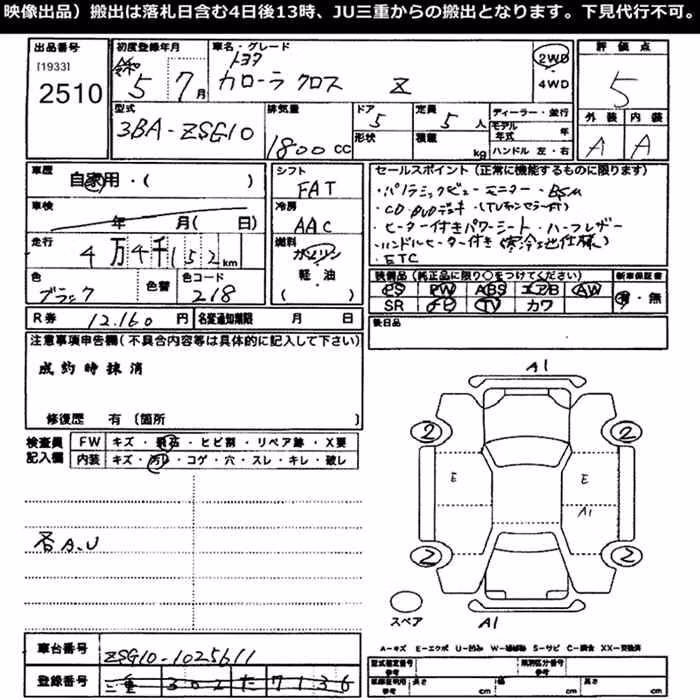 映像出品）搬出は落札日含む4日後13時、JU三重からの搬出となります。下見代行不可。
出品番号 [1933] 2510
初度登録年月 令和 5 7月
車名・グレード トヨタ カローラ クロス Z
2WD ・ 4WD
評価点 5
外装 A 内装 A
型式 3BA-ZSG10
排気量 1800 CC
ドア 5 形状
定員 5 人 積載 kg
ディーラー・並行
モデル年式 年
ハンドル 左・右
車歴 自家用・( )
車検 年 月( 日)
走行 4万4千152km
色 ブラック 色替 色コード 218
シフト FAT
冷房 AAC
燃料 ガソリン・軽・油 ( )
セールスポイント（正常に機能するものに限ります）
・パノラミックビューモニター・BSM
・CD・DVDデッキ・(TVキャンセラー付)
・ヒーター付きパワーシート・ハーフレザー
・ハンドルヒーター付き(寒冷地仕様)
・ETC
装備品（純正品に限り○をつけてください）
PS PW ABS エアB AW
SR ナビ TV カワ
新車保証書 有・無
R券 12.160 円 名変通知期限 月 日
後日品
注意事項申告欄(不具合内容等は具体的に記入して下さい)
成約時抹消
修復歴 有（箇所 ）
検査員記入欄
FW キズ・飛石・ヒビ割・リペア跡・X要
内装 キズ・汚れ・コゲ・穴・スレ・キレ・破レ
各A.U
A1
2 2
E E
A1
2 2
スペア A1
A-キズ E-エクボ U-凹み W-補修跡 S-サビ C-腐食 XX-交換済
車台番号 ZSG10-1025611
登録番号 三重 302 た 7136
型式指定番号 参考 類別区分番号 参考
長さ cm 幅 cm 高さ cm